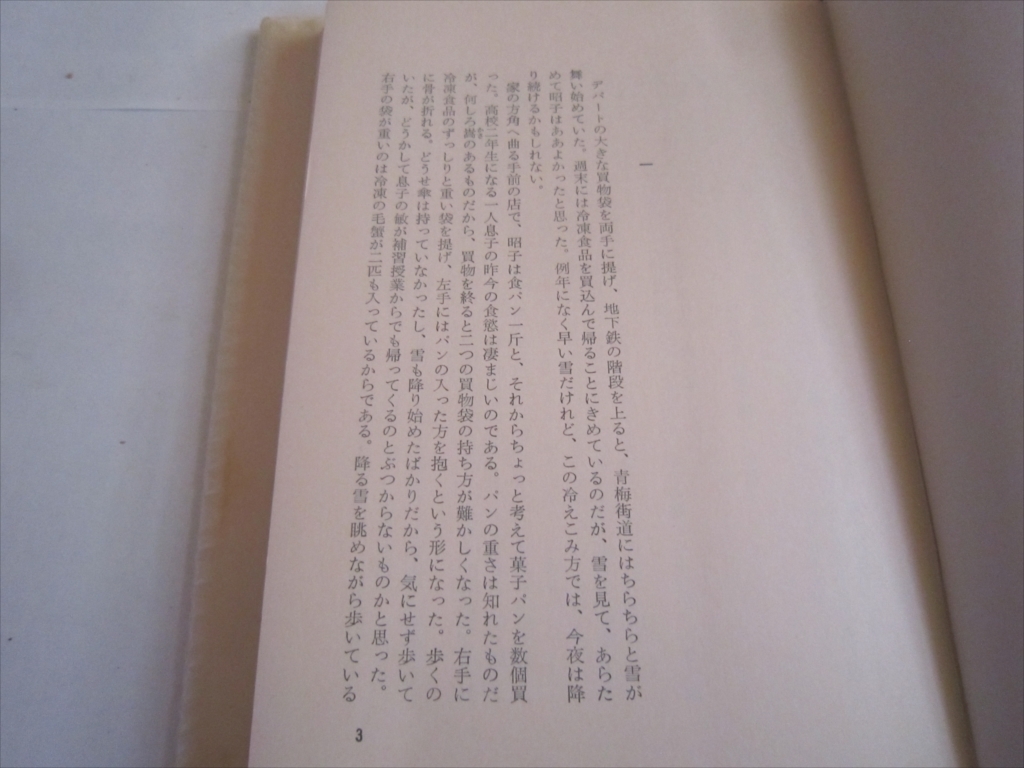 一
デパートの大きな買物袋を両手に提げ、地下鉄の階段を上ると、青梅街道にはちらちらと雪が
舞い始めていた。週末には冷凍食品を買込んで帰ることにきめているのだが、雪を見て、あらた
めて昭子はああよかったと思った。例年になく早い雪だけれど、この冷えこみ方では、今夜は降
り続けるかもしれない。
家の方角へ曲る手前の店で、昭子は食パン一斤と、それからちょっと考えて菓子パンを数個買
った。高校二年生になる一人息子の昨今の食慾は凄まじいのである。パンの重さは知れたものだ
が、何しろ嵩のあるものだから、買物を終ると二つの買物袋の持ち方が難かしくなった。右手に
かさ
冷凍食品のずっしりと重い袋を提げ、左手にはパンの入った方を抱くという形になった。歩くの
に骨が折れる。どうせ傘は持っていなかったし、雪も降り始めたばかりだから、気にせず歩いて
いたが、どうかして息子の敏が補習授業からでも帰ってくるのとぶつからないものかと思った。
右手の袋が重いのは冷凍の毛蟹が二匹も入っているからである。降る雪を眺めながら歩いている
3